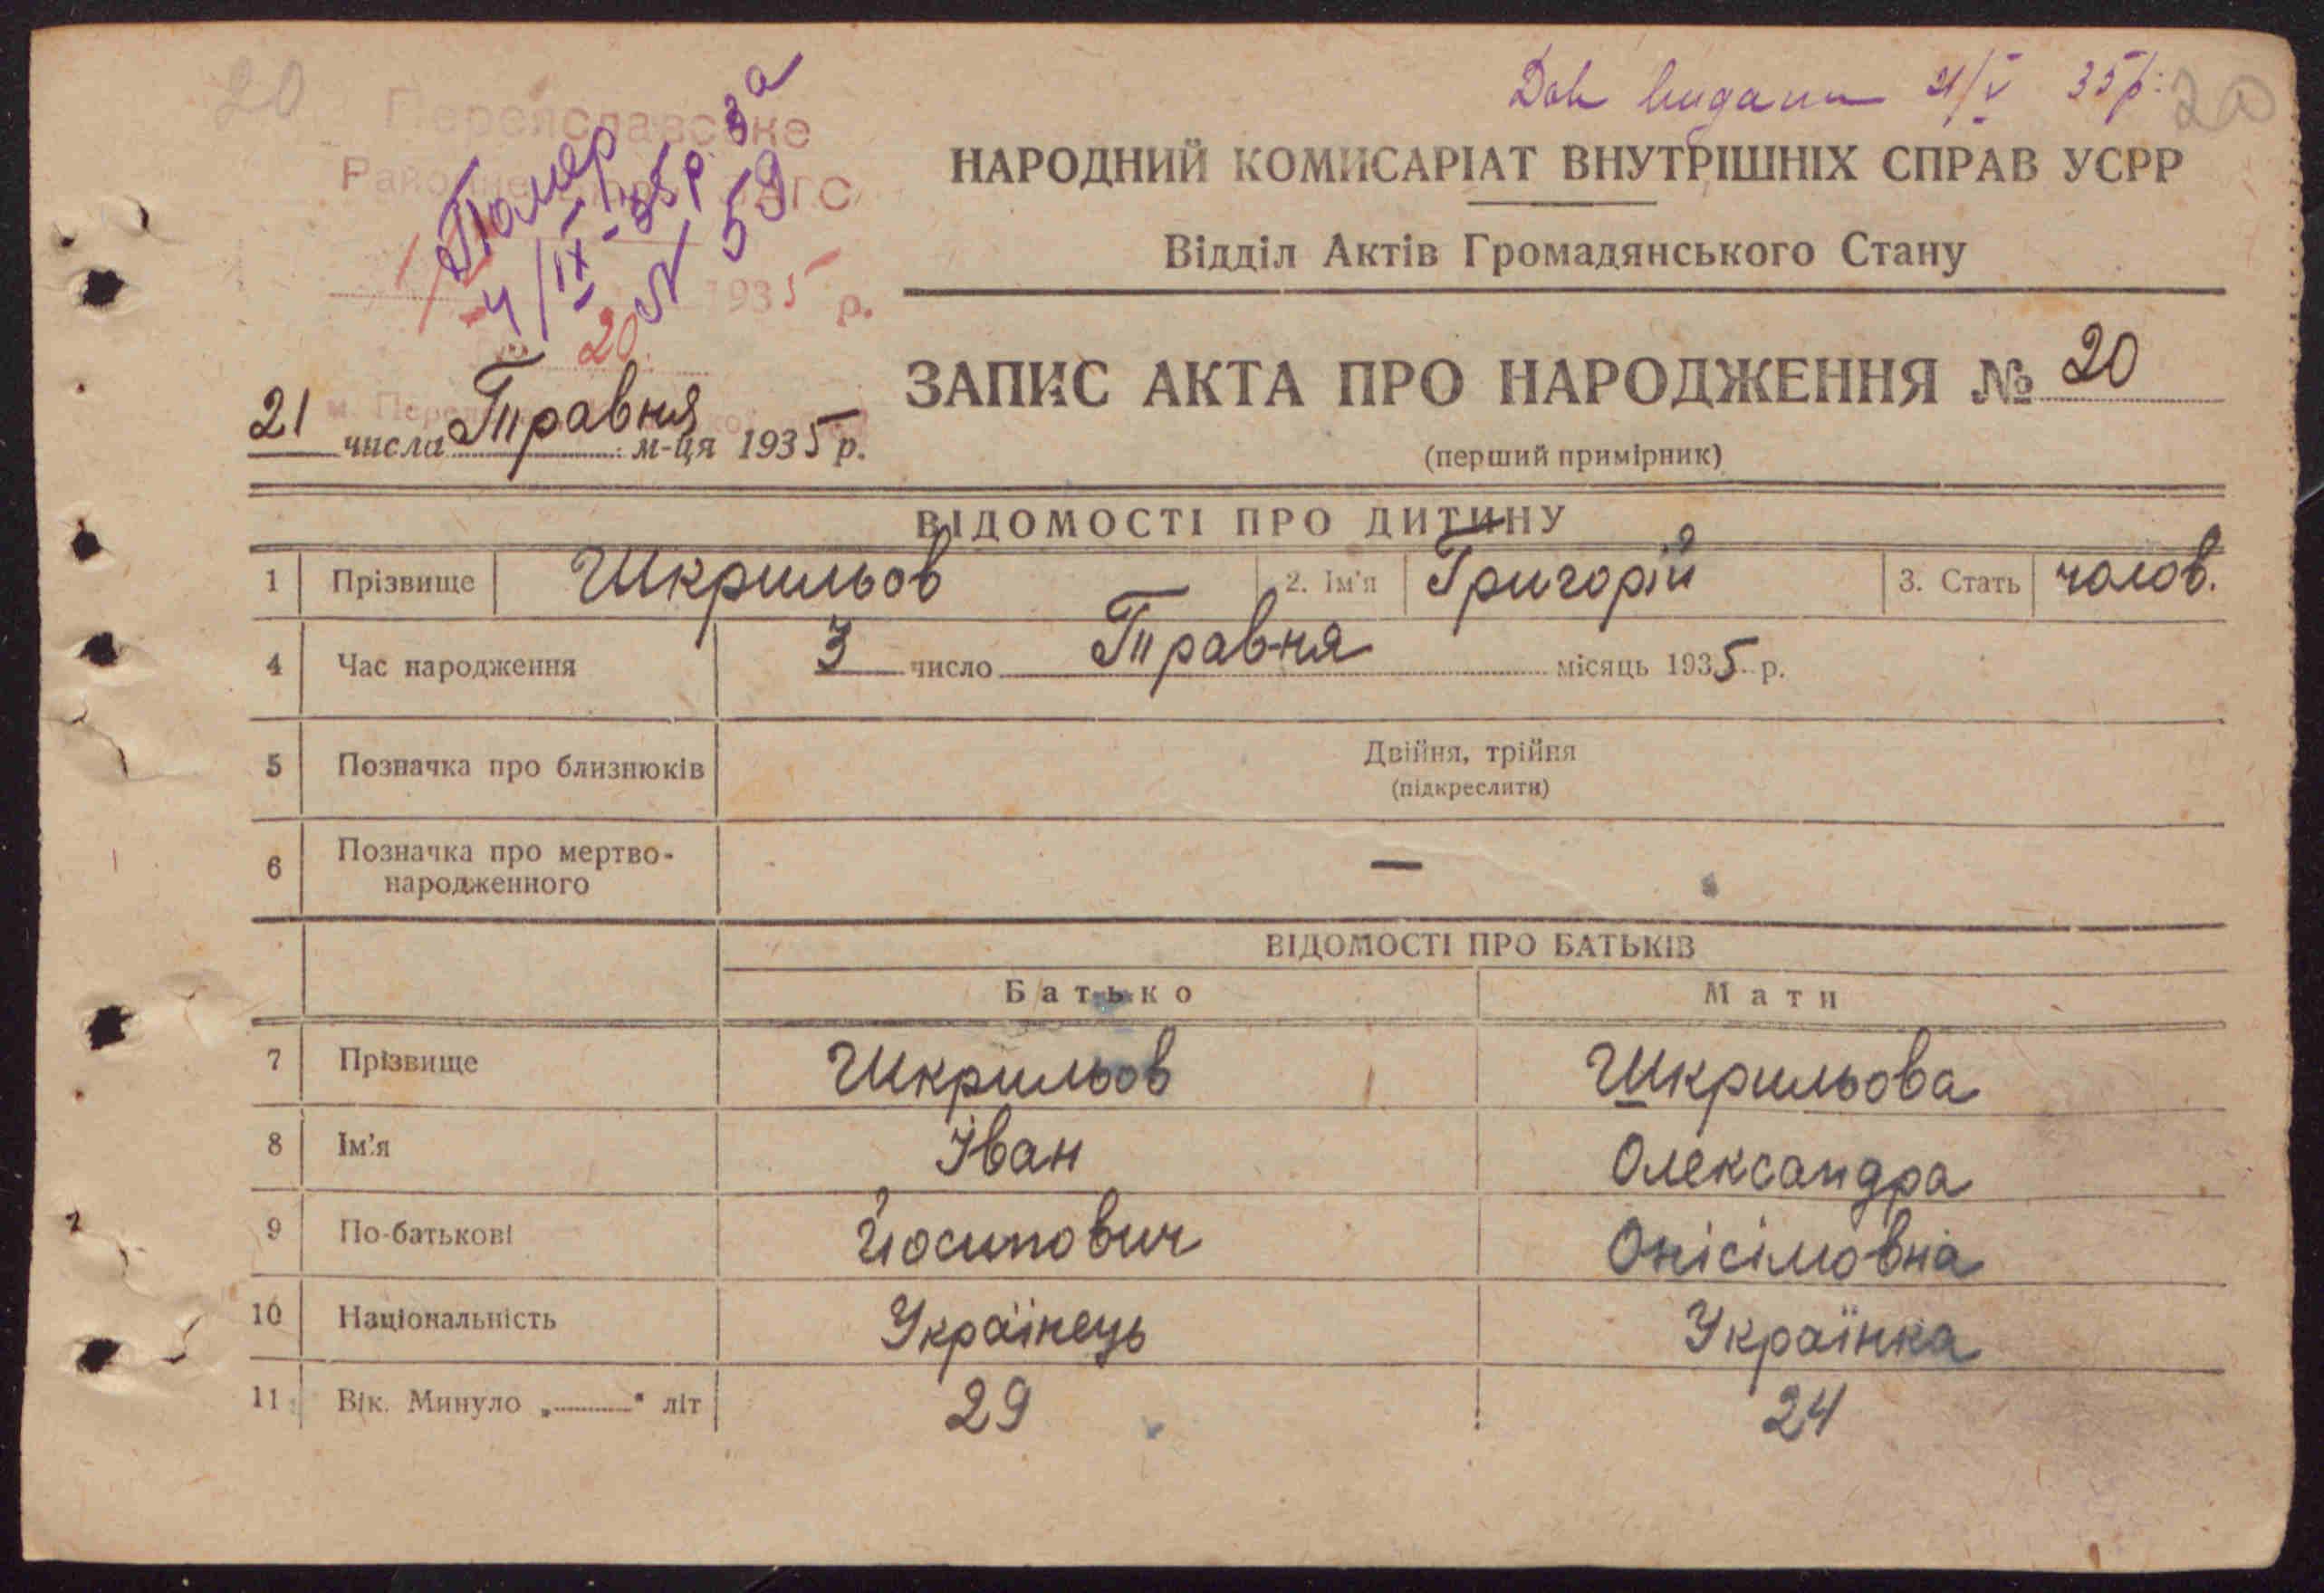 20
Переяславське
Районне ЗАГС
Помер
4/IX-35р. за
№ 59
1935 р.
20.
Dob 21/V 35р. 20
НАРОДНИЙ КОМИСАРІАТ ВНУТРІШНІХ СПРАВ УСРР
Відділ Актів Громадянського Стану
ЗАПИС АКТА ПРО НАРОДЖЕННЯ № 20
(перший примірник)
21 числа Травня м-ця 1935 р.
ВІДОМОСТІ ПРО ДИТИНУ
1 Прізвище Шкрильов 2. Ім'я Григорій 3. Стать чолов.
4 Час народження 3 число Травня місяць 1935 р.
5 Позначка про близнюків Двійня, трійня
(підкреслити)
6 Позначка про мертво-
народженного —
ВІДОМОСТІ ПРО БАТЬКІВ
Батько Мати
7 Прізвище Шкрильов Шкрильова
8 Ім'я Іван Олександра
9 По-батькові Йосипович Онісімовна
10 Національність Українець Українка
11 Вік. Минуло „ " літ 29 24